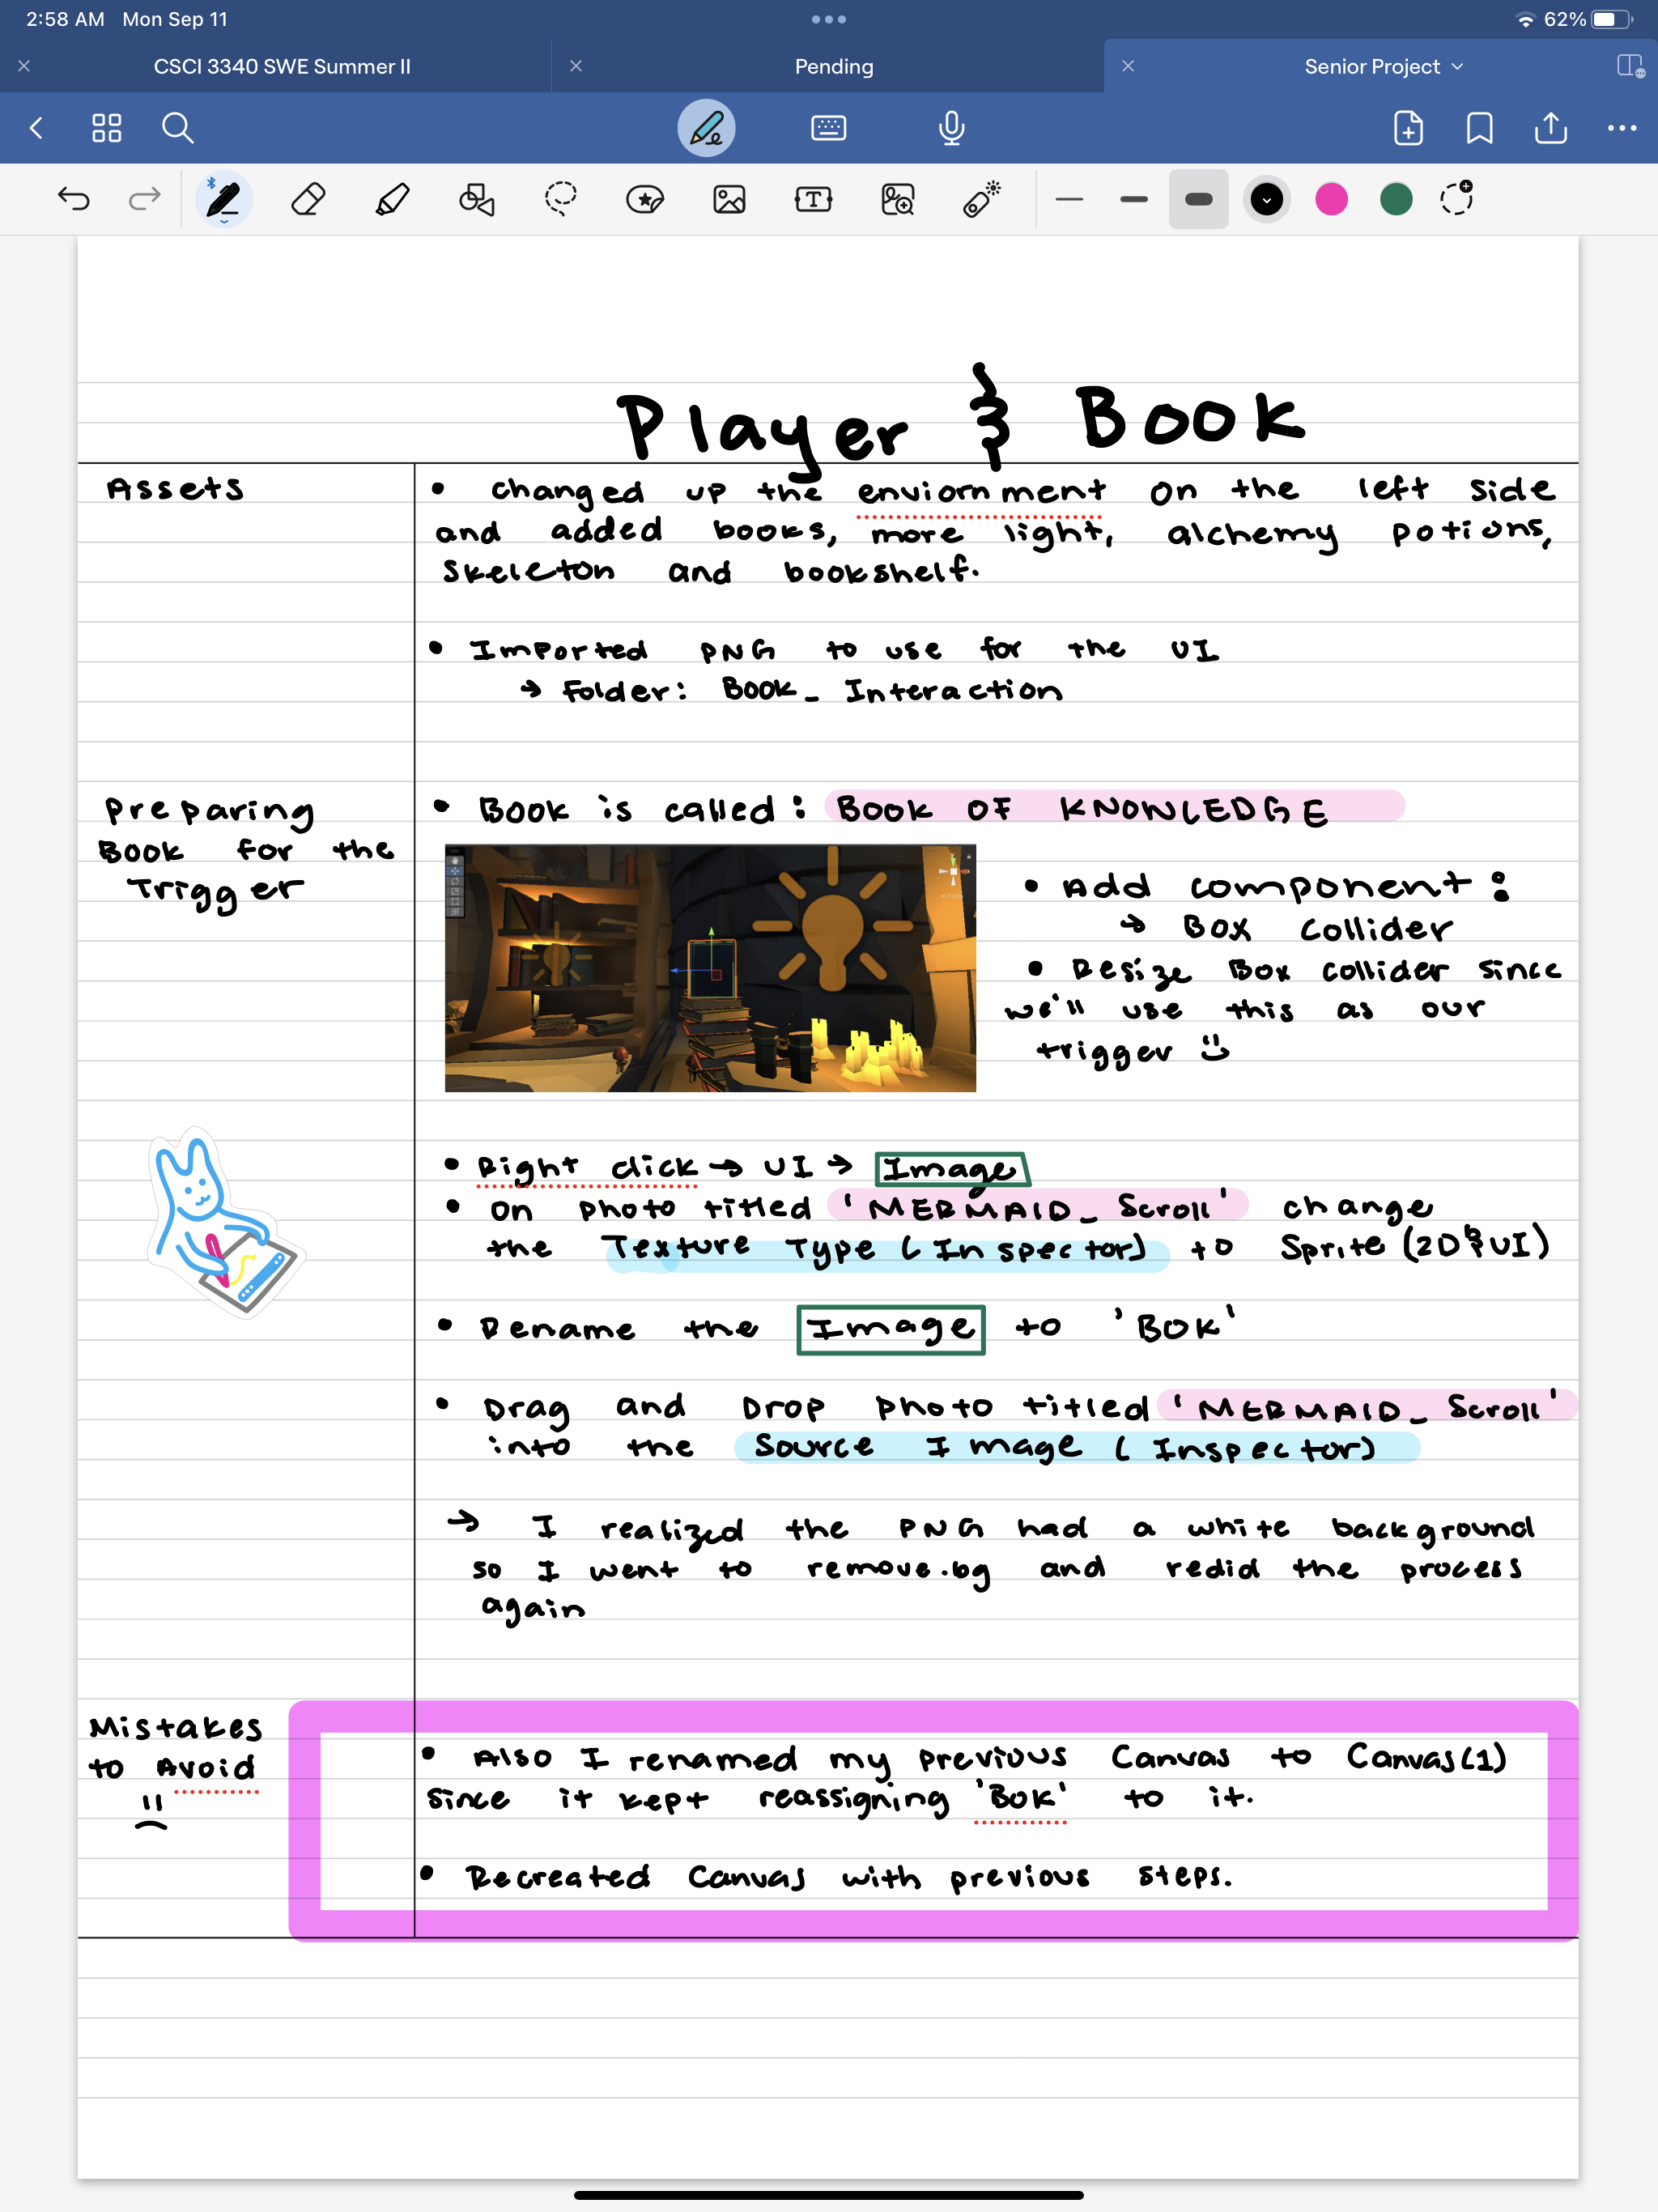 2:58 AM Mon Sep 11
62%
CSCI 3340 SWE Summer II
Pending
Senior Project
Player & Book
Assets
• changed up the enviornment on the left side
and added books, more light, alchemy potions,
skeleton and bookshelf.
• Imported PNG to use for the UI
→ Folder: Book_Interaction
Preparing
Book for the
Trigger
• Book is called: BOOK OF KNOWLEDGE
• Add component:
→ Box Collider
• Resize Box collider since
we'll use this as our
trigger
• Right click → UI → Image
• On photo titled 'MERMAID_Scroll' change
the Texture Type (Inspector) to Sprite (2D & UI)
• Rename the Image to 'BOK'
• Drag and Drop photo titled 'MERMAID_Scroll'
into the Source Image (Inspector)
→ I realized the PNG had a white background
so I went to remove.bg and redid the process
again
Mistakes
to Avoid
• Also I renamed my previous Canvas to Canvas(1)
since it kept reassigning 'BOK' to it.
• Recreated Canvas with previous steps.